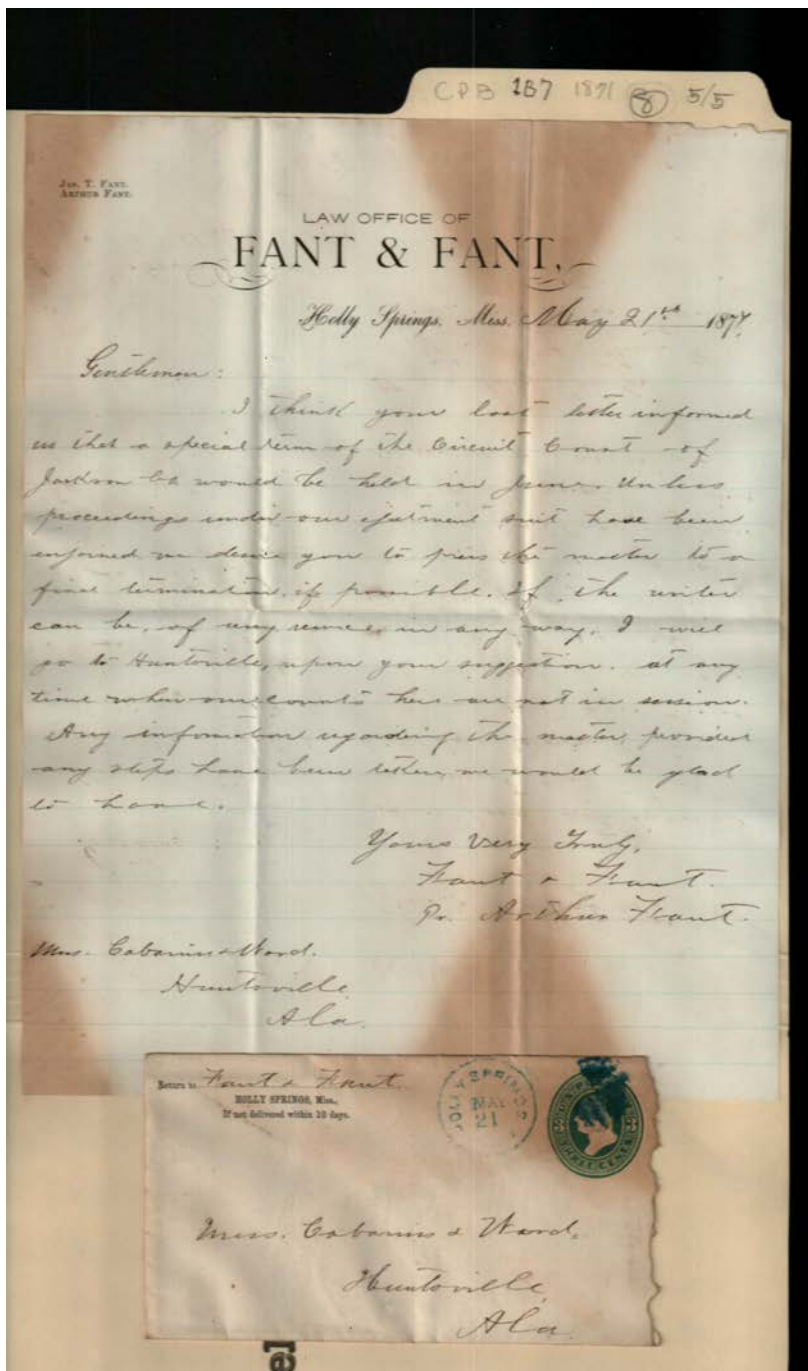 CPB 1B7 1871 8 5/5
Jas. T. Fant.
Arthur Fant.
LAW OFFICE OF
FANT & FANT,
Holly Springs, Miss. May 21st 1877.
Gentlemen:
I think your last letter informed
us that a special term of the Circuit Court of
Jackson Co would be held in June. Unless
proceedings under our ejectment suit have been
enjoined we desire you to press the matter to a
final termination, if possible. If the writer
can be, of any service, in any way, I will
go to Huntsville, upon your suggestion, at any
time when our courts here are not in session.
Any information regarding the matter, provided
any steps have been taken, we would be glad
to have.
Yours Very Truly,
Fant & Fant.
Pr. Arthur Fant.
Mess. Cabaniss & Ward.
Huntsville
Ala.
Return to Fant & Fant.
HOLLY SPRINGS, Miss.,
If not delivered within 10 days.
HOLLY SPRINGS
MAY
21
U.S. POSTAGE
THREE CENTS
Mess. Cabaniss & Ward,
Huntsville,
Ala.
el